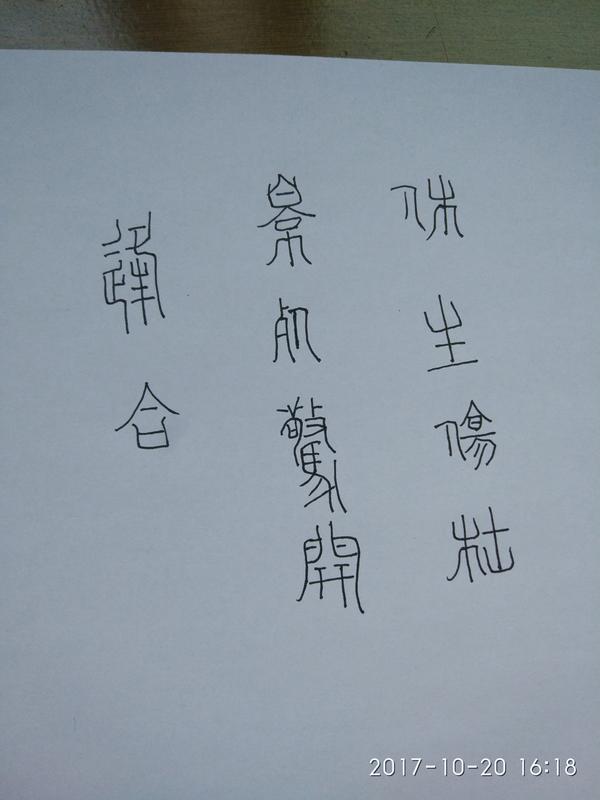 休生傷杜
景死驚開
逢合
2017-10-20 16:18